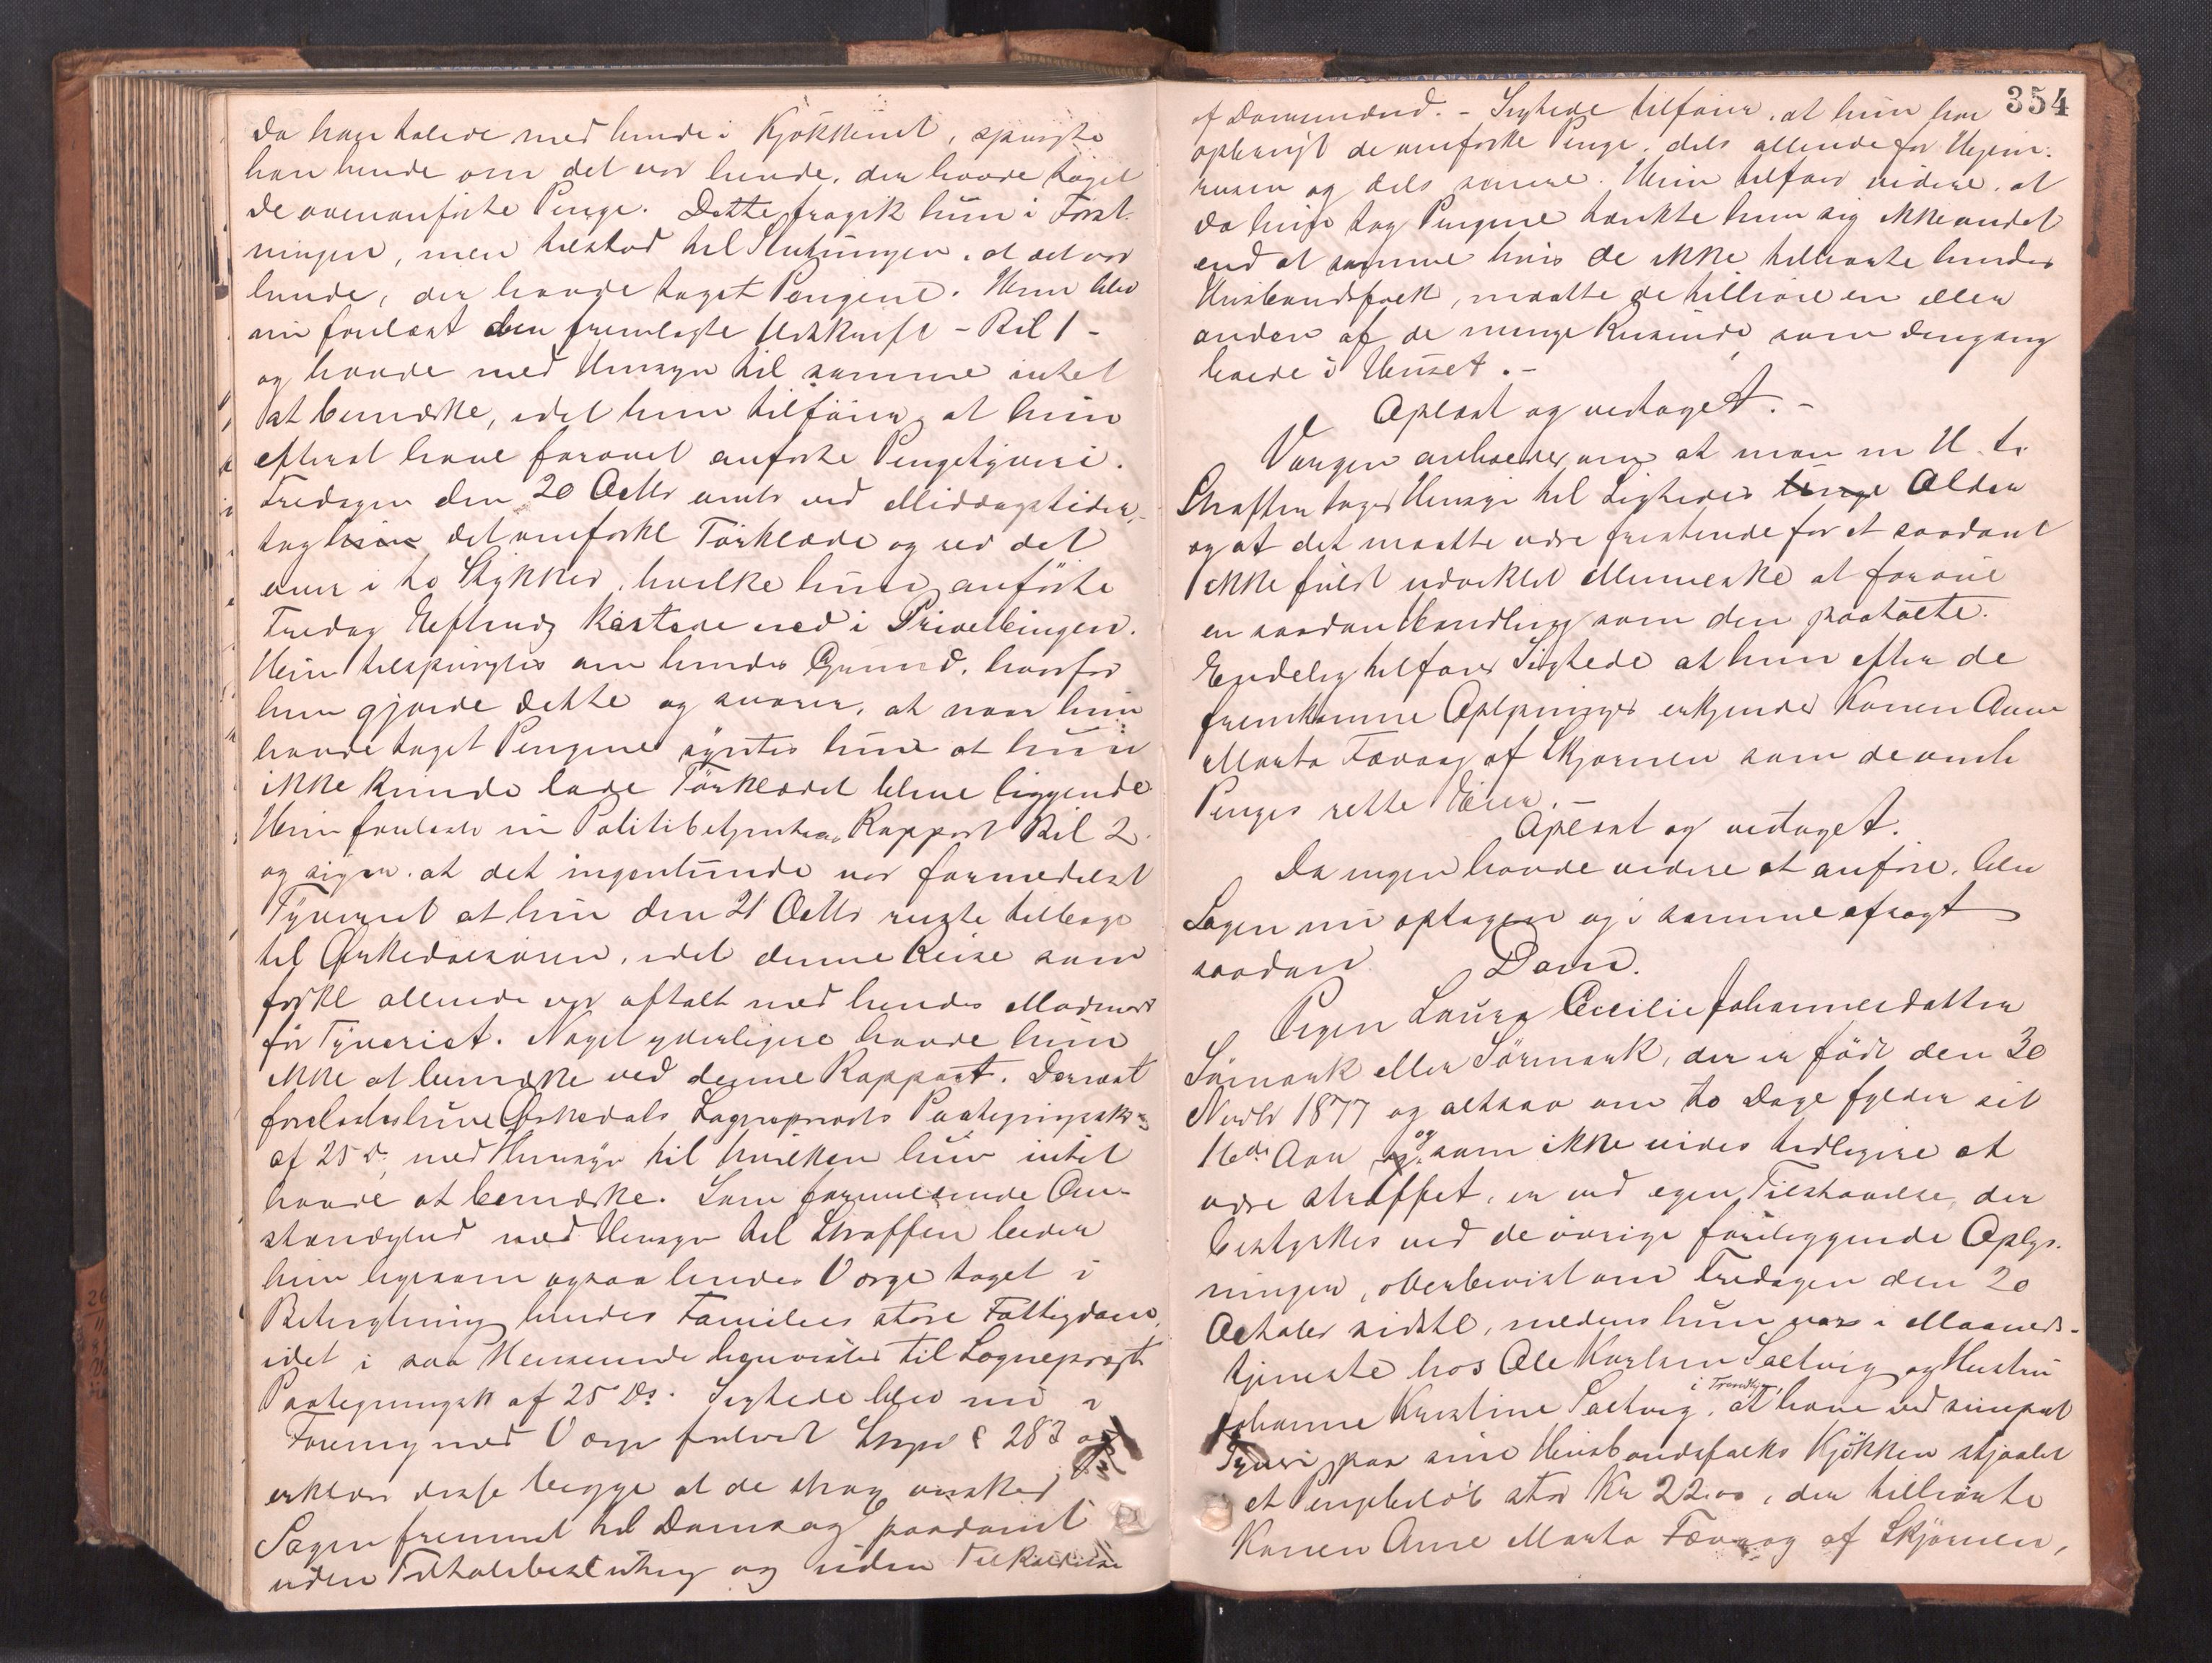 da han talede med hende i Kjøkkenet, spurgte
han hende om det var hende, der havde taget
de ovenanførte Penge. Dette fragik hun i Først-
ningen, men tilstod til Slutningen, at det var
hende, der havde taget Pengene. Hun blev
nu forelæst den fremlagte Udskrift - Bil 1 -
og havde med Hensyn til samme intet
at bemærke, idet hun tilføier, at hun
efterat have forøvet anførte Pengetyveri.
Fredagen den 20 Octbr omtr ved Middagstiden,
tog hun det omforkl Tørklæde og rev det
over i to Stykker, hvilke hun anførte
Fredag Eftermdg kastede ned i Privetbingen.
Hun tilspurgtes om hendes Grund, hvorfor
hun gjorde dette og svarer, at naar hun
havde taget Pengene syntes hun at hun
ikke kunde lade Tørklædet blive liggende
Hun forelæstes nu Politibetjentens Rapport Bil 2.
og siger, at det ingenlunde var formedelst
Tyveriet at hun den 21 Octbr reiste tilbage
til Ørkedalsøren, idet denne Reise som
forkl allerede var aftalt med hendes Madmor
før Tyveriet. Noget yderligere havde hun
ikke at bemærke ved denne Rapport. Dernæst
forelæstes hun Ørkedals Sogneprests Paategningssk
af 25 ds, med Hensyn til hvilken hun intet
havde at bemærke. Som formildende Om-
stændighed med Hensyn til Straffen beder
hun ligesom ogsaa hendes Værge taget i
Betragtning hendes Families store Fattigdom,
idet i saa Henseende henvistes til Sogneprest
Paategningssk af 25 Ds. Sigtede blev nu i
Forening med Værge forelæst Lovens § 283 og
erklærer disse begge at de strax ønsker
Sagen fremmet til Doms og paadømt
uden Tiltalebeslutning og uden Tilkaldelse
354
af Domsmænd. - Sigtede tilføier, at hun har
opbrugt de omforkl Penge, dels allerede for Hjem-
reisen og dels senere. Hun tilføier videre, at
da hun tog Pengene tænkte hun sig ikke andet
end at samme hvis de ikke tilhørte hendes
Husbondsfolk, maatte de tilhøre en eller
anden af de mange Reisende, som dengang
havde i Huset. -
Oplæst og vedtaget. -
Værgen anholder om at man m H. t.
Straffen tager Hensyn til Sigtedes unge Alder
og at det maatte være fristende for et saadant
ikke fuldt udviklet Menneske at forøve
en saadan Handling som den paatalte.
Endelig tilfører Sigtede at hun efter de
fremkomne Oplysninger erkjender Konen Anne
Marta Fævaag af Skjørnen som de omh
Penges rette Eier. -
Oplæst og vedtaget.
Da ingen havde videre at anføre, blev
Sagen nu optagen og i samme afsagt
saadan Dom.
Pigen Laura Cecilie Johannesdatter
Sømark eller Sørmark, der er født den 30
Novbr 1877 og altsaa om to Dage fylder sit
16de Aar og som ikke vides tidligere at
være straffet, er ved egen Tilstaaelse, der
bestyrkes ved de øvrige foreliggende Oplys-
ninger, overbevist om Fredagen den 20
October sidstl, medens hun var i Maaneds-
tjeneste hos Ole Karlsen Saltvig og Hustru
Johanne Kristine Saltvig, i Trondhjem, at have ved simpelt
Tyveri paa sine Husbondsfolks Kjøkken stjaalet
et Pengebeløb stor Kr 22.00, der tilhørte
Konen Anne Marta Fævaag af Skjørnen,